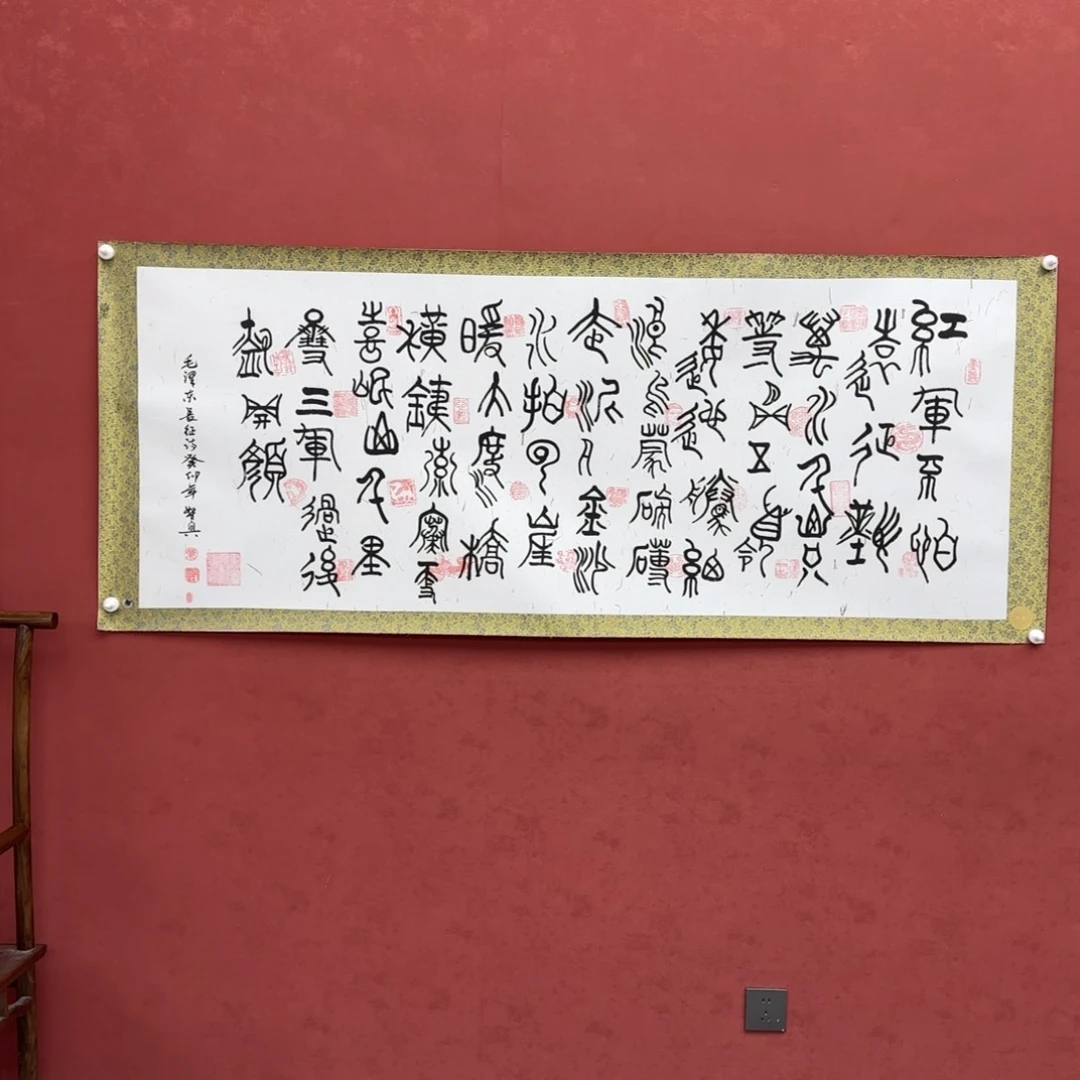 紅軍不怕
遠征難
萬水千山只
等閒五嶺
逶迤騰細
浪烏蒙磅礴
走泥丸金沙
水拍雲崖
暖大渡橋
橫鐵索寒更
喜岷山千里
雪三軍過後
盡開顏
毛澤東長征詩癸卯年